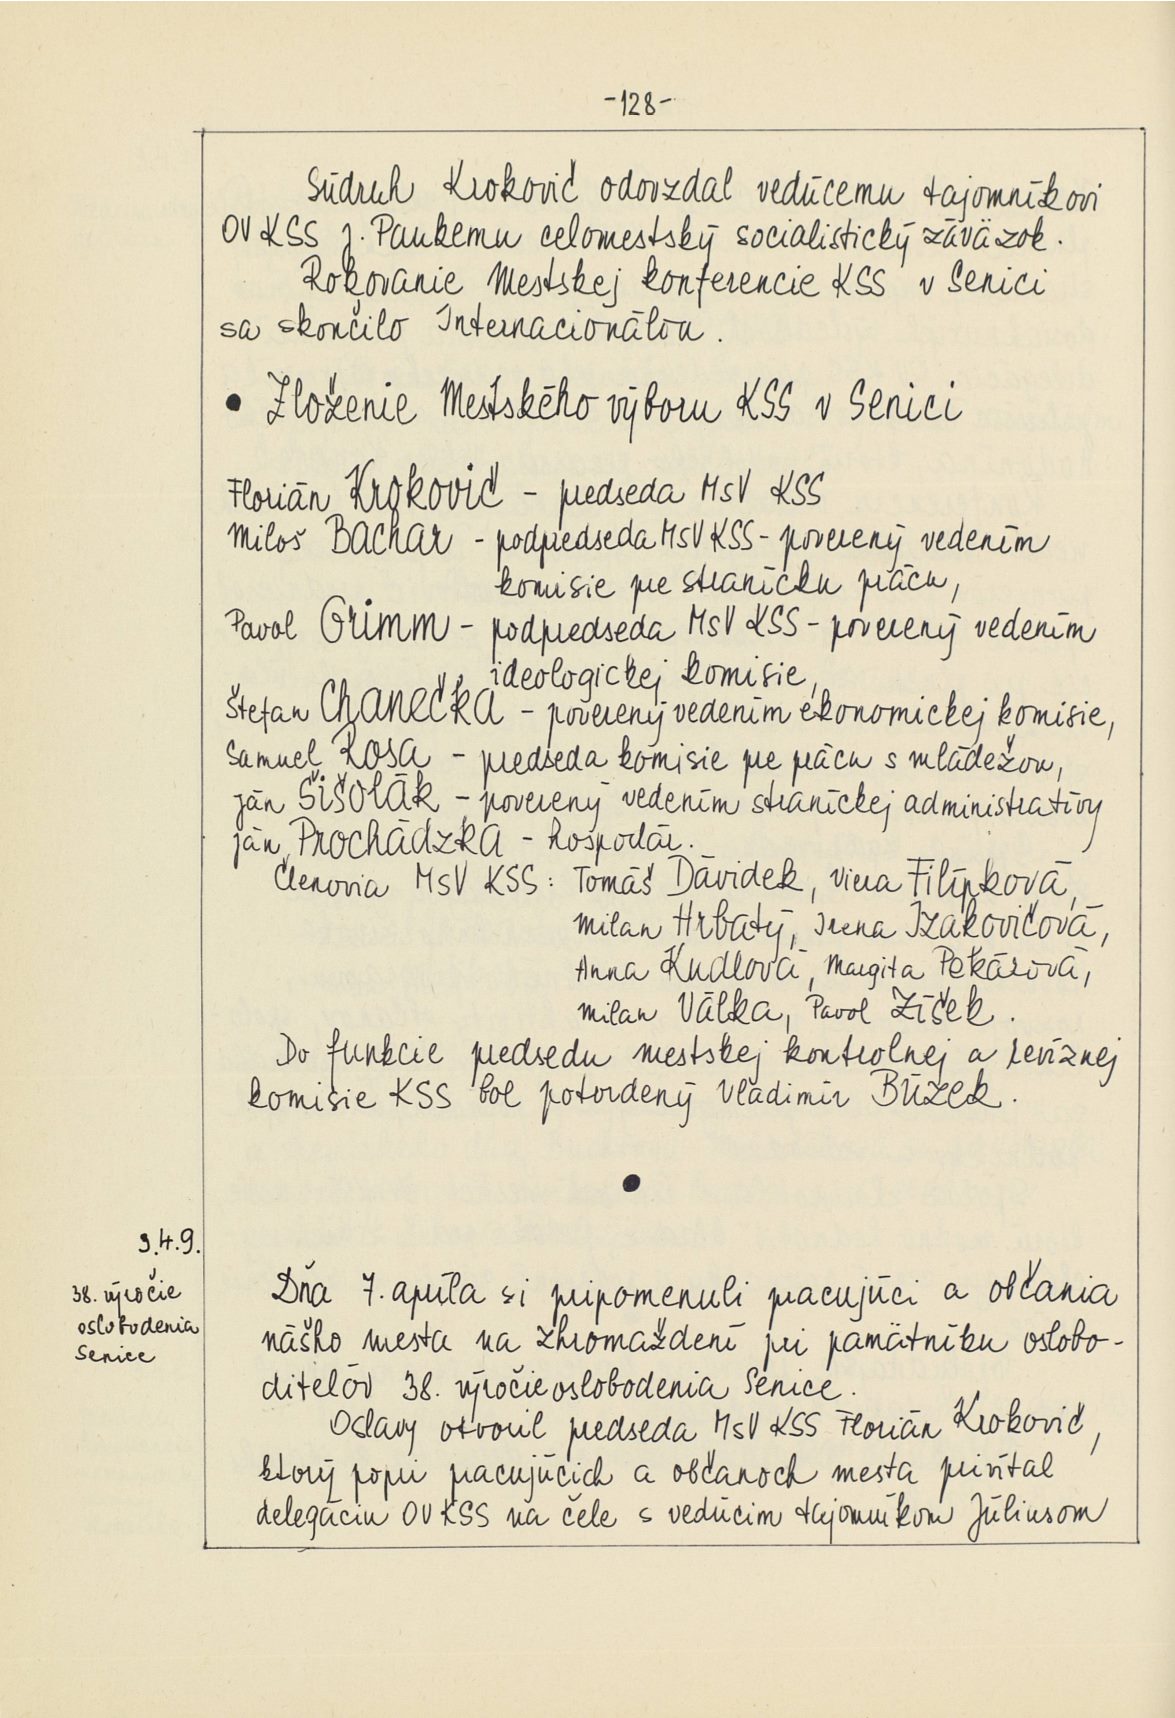 -128-
Súdruh Krokovič odovzdal vedúcemu tajomníkovi
OV KSS J. Paukemu celomestský socialistický záväzok.
Rokovanie Mestskej konferencie KSS v Senici
sa skončilo Internacionálou.
• Zloženie Mestského výboru KSS v Senici
Florián Krokovič - predseda MsV KSS
Miloš Bachar - podpredseda MsV KSS - poverený vedením
komisie pre stranícku prácu,
Pavol Grimm - podpredseda MsV KSS - poverený vedením
ideologickej komisie,
Štefan Chanečka - poverený vedením ekonomickej komisie,
Samuel Rosa - predseda komisie pre prácu s mládežou,
Ján Šišolák - poverený vedením straníckej administratívy
Ján Prochádzka - hospodár.
Členovia MsV KSS: Tomáš Dávidek, Viera Filípková,
Milan Hrbatý, Irena Izakovičová,
Anna Kudlová, Margita Pekárová,
Milan Válka, Pavol Zíšek.
Do funkcie predsedu mestskej kontrolnej a revíznej
komisie KSS bol potvrdený Vladimír Búzek.
•
3.4.9.
38. výročie
oslobodenia
Senice
Dňa 7. apríla si pripomenuli pracujúci a občania
nášho mesta na zhromaždení pri pamätníku oslobo-
diteľov 38. výročie oslobodenia Senice.
Oslavy otvoril predseda MsV KSS Florián Krokovič,
ktorý popri pracujúcich a občanoch mesta privítal
delegáciu OV KSS na čele s vedúcim tajomníkom Júliusom